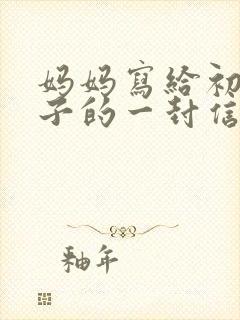 妈妈寫給初
子的一封信
釉年